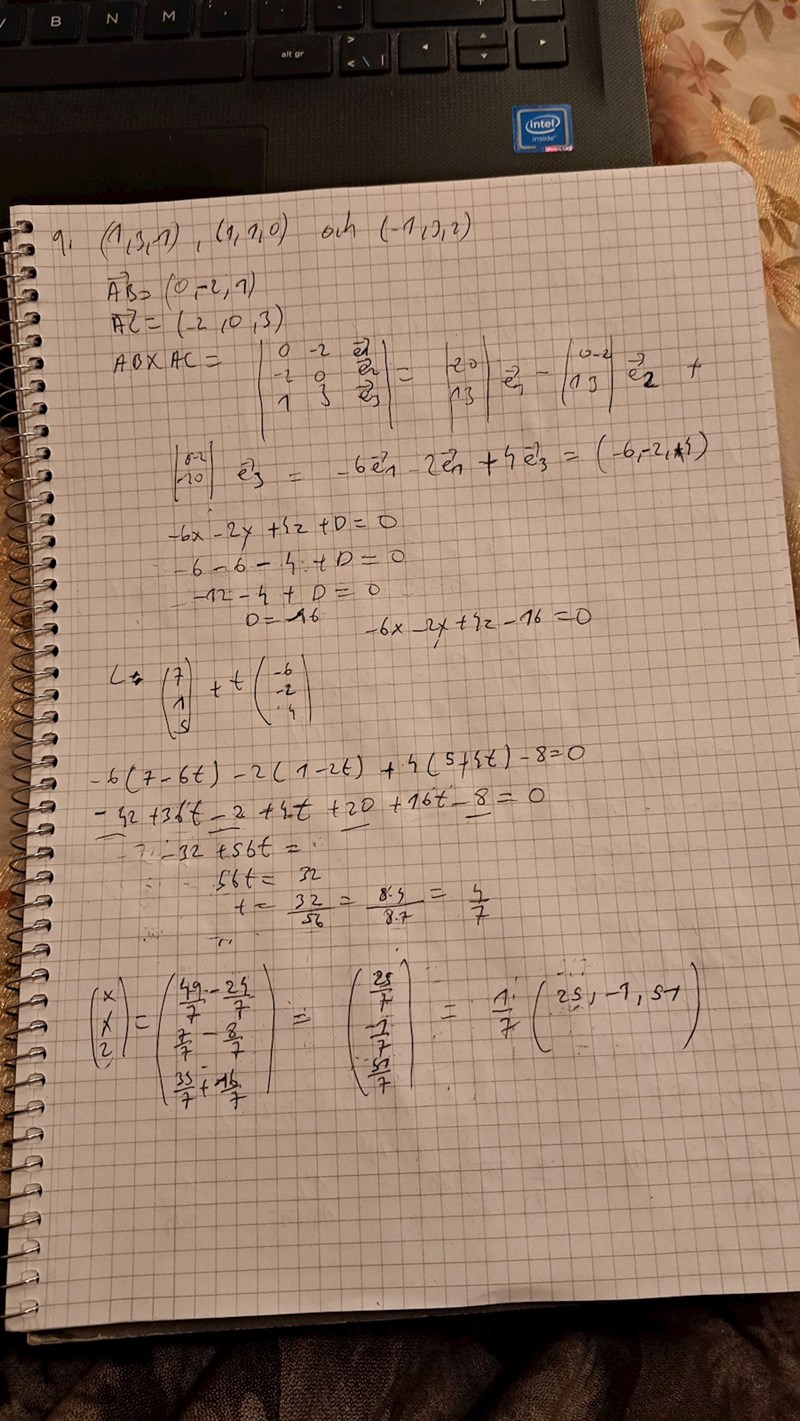 B N M
alt gr
>
< \ |
intel
inside
9. (1,3,-1), (1,1,0) och (-1,3,2)
AB = (0,-2,1)
AC = (-2,0,3)
AB X AC = | 0 -2 e1 | = | -2 0 | e1 - | 0 -2 | e2 +
| -2 0 e2 | | 1 3 | | 1 3 |
| 1 3 e3 |
| 0 -2 | e3 = -6e1 - 2e1 + 4e3 = (-6,-2, 4)
| -2 0 |
-6x - 2y + 4z + D = 0
-6 - 6 - 4 + D = 0
-12 - 4 + D = 0
D = 16 -6x - 2y + 4z - 16 = 0
L: (7 1 5) + t (-6 -2 4)
-6(7-6t) - 2(1-2t) + 4(5+4t) - 8 = 0
-42 + 36t - 2 + 4t + 20 + 16t - 8 = 0
-32 + 56t =
56t = 32
t = 32/56 = 8·4/8·7 = 4/7
(x y z) = (49/7 - 24/7 7/7 - 8/7 35/7 + 16/7) = (25/7 -1/7 51/7) = 1/7 (25, -1, 51)